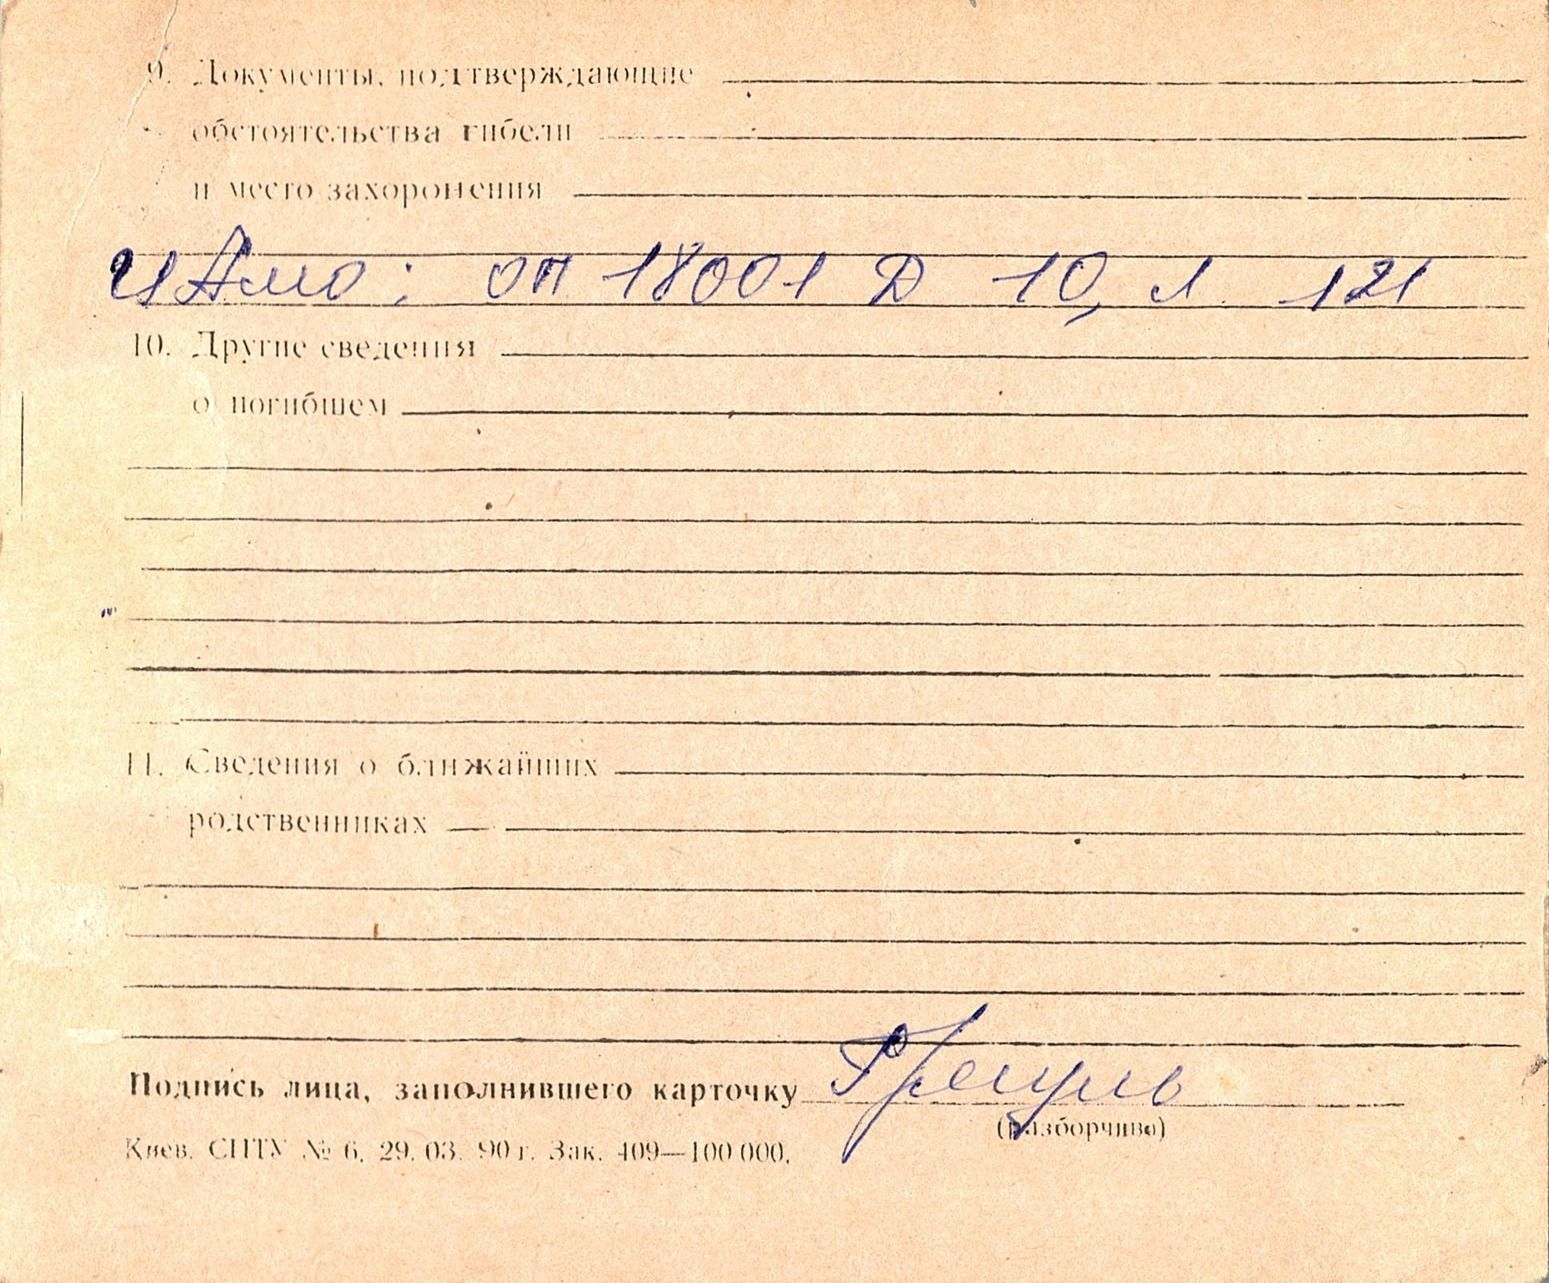 9. Документы, подтверждающие
обстоятельства гибели
и место захоронения
ЦАМО: оп 18001 Д 10, л 121
10. Другие сведения
о погибшем
11. Сведения о ближайших
родственниках
Подпись лица, заполнившего карточку
(разборчиво)
Киев. СПТУ № 6. 29. 03. 90 г. Зак. 409—100 000.